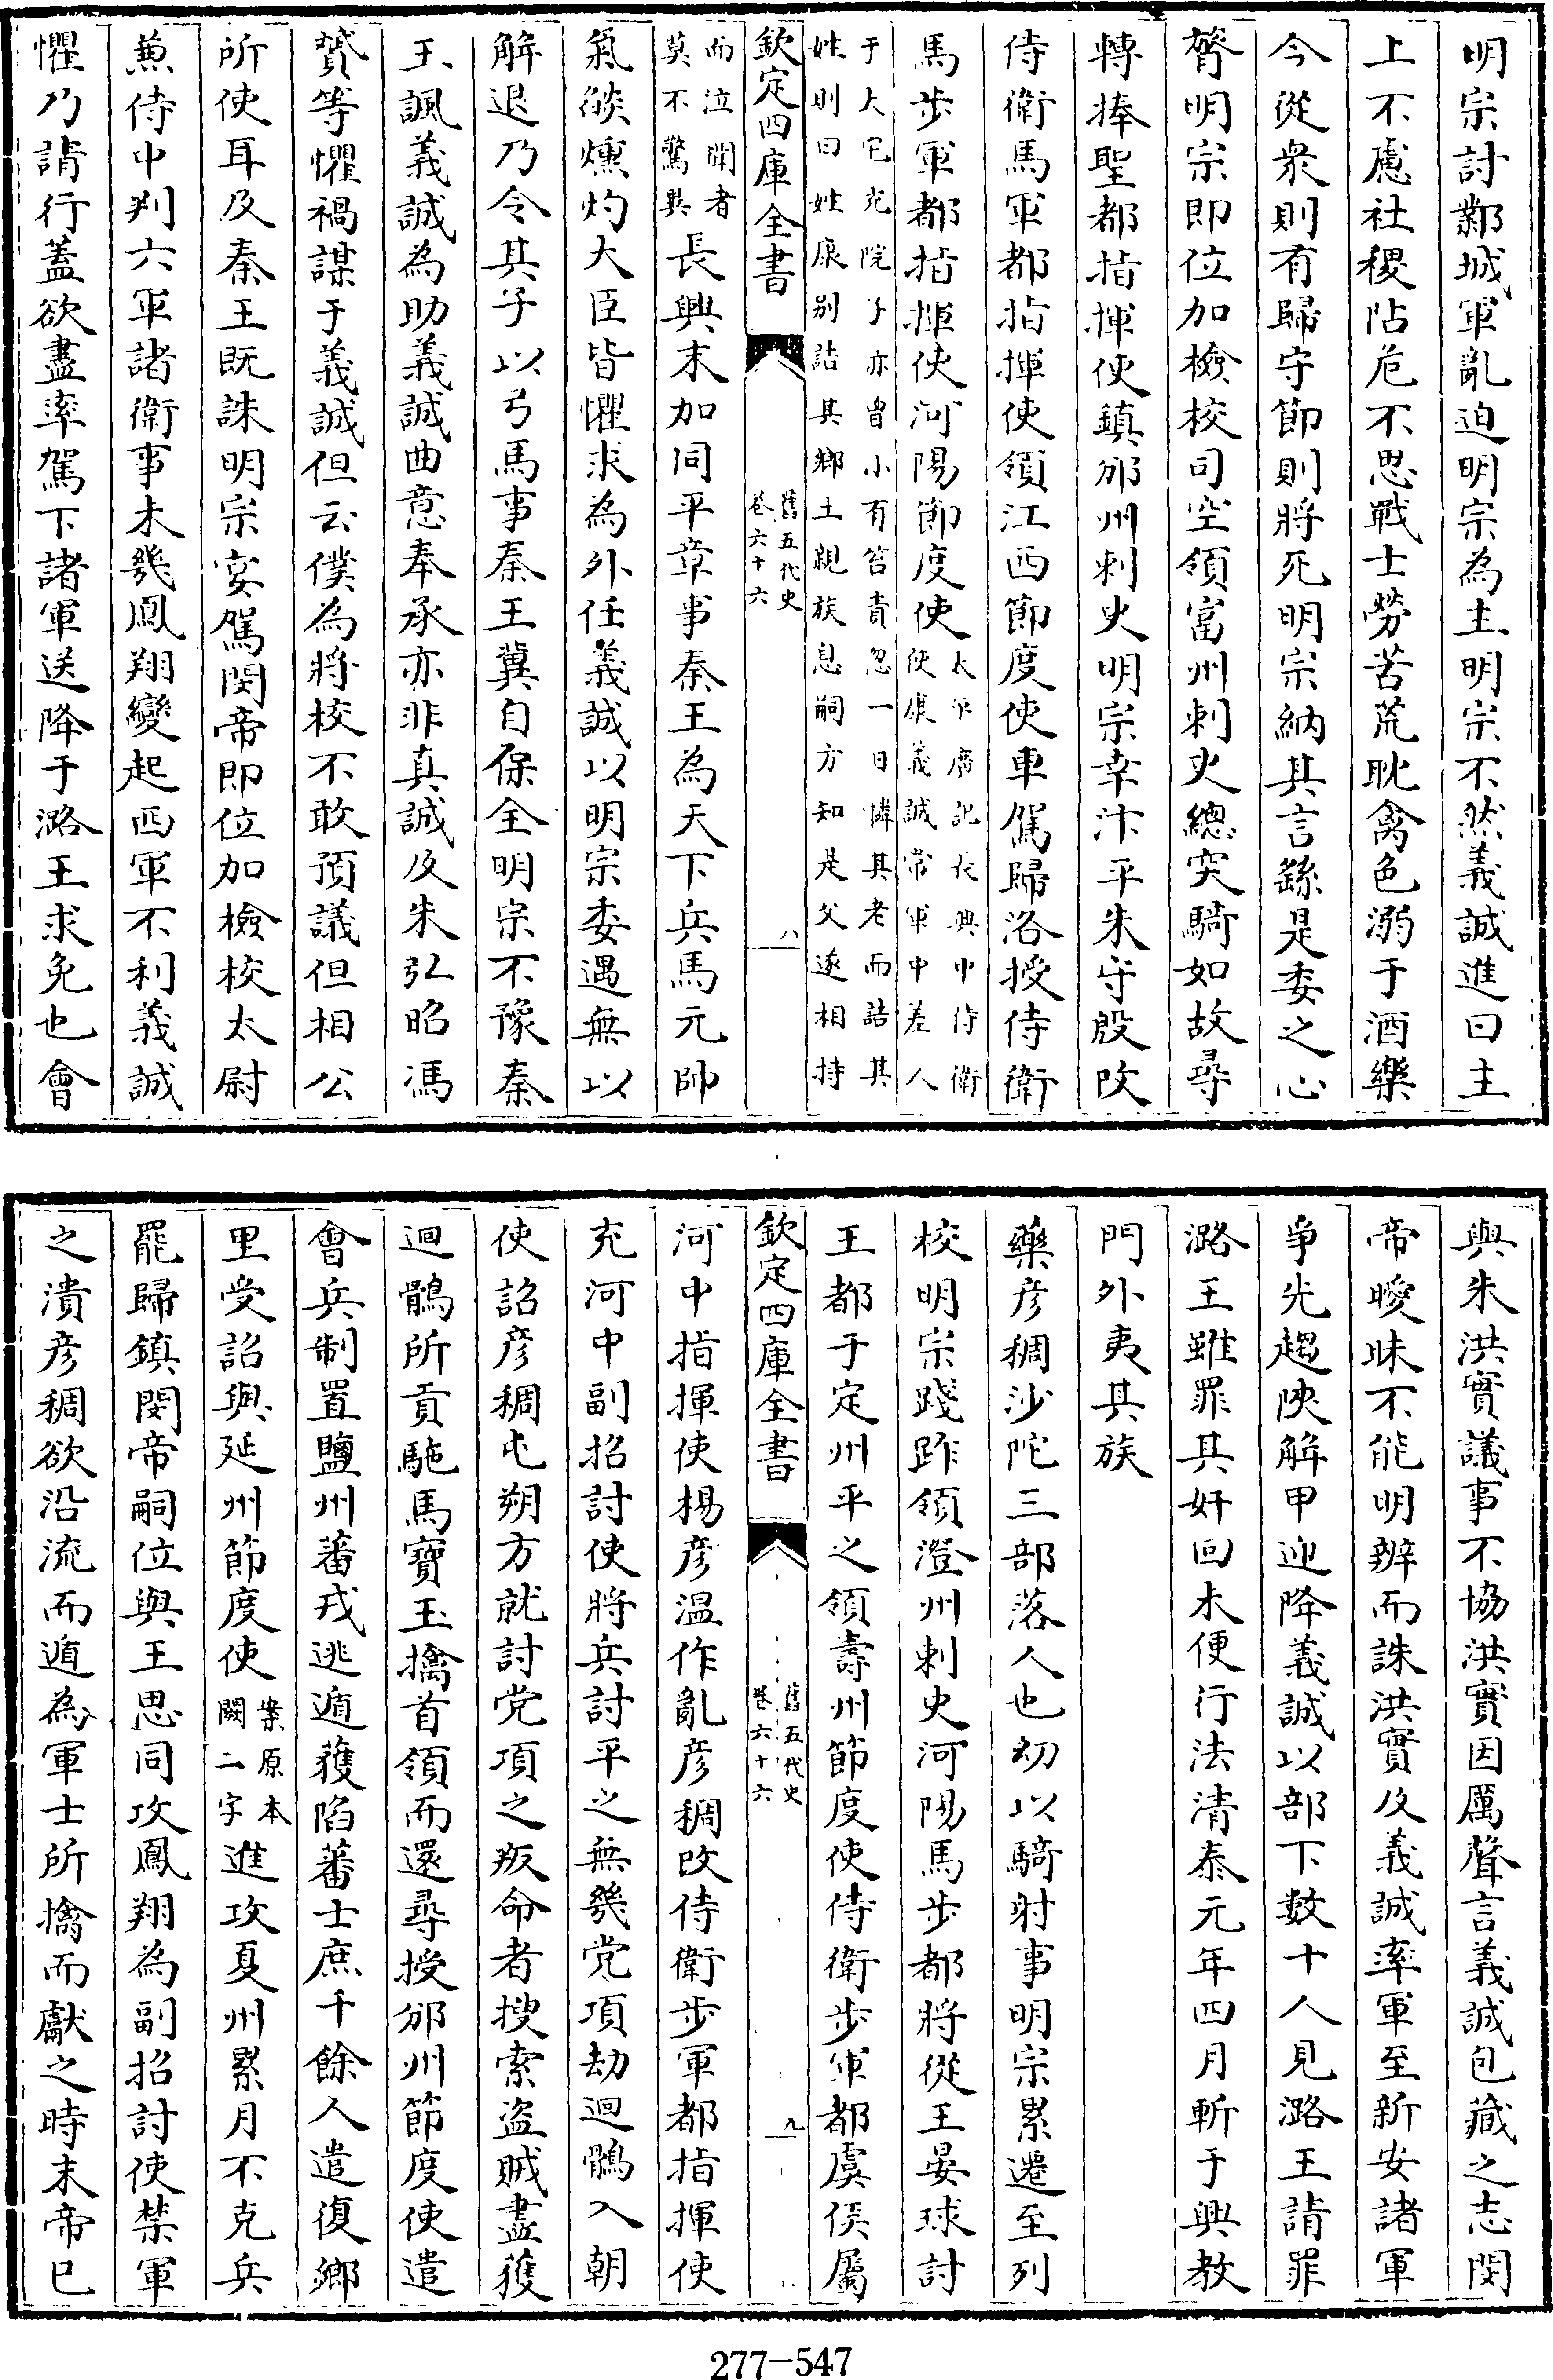 明宗討鄴城軍亂迫明宗為主明宗不然義誠進曰主
上不慮社稷阽危不思戰士勞苦荒耽禽色溺于酒樂
今從衆則有歸守節則將死明宗納其言繇是委之心
膂明宗即位加檢校司空領富州刺史總突騎如故尋
轉捧聖都指揮使鎮邠州刺史明宗幸汴平朱守殷改
侍衛馬軍都指揮使領江西節度使車駕歸洛授侍衛
馬步軍都指揮使河陽節度使太平廣記長興中侍衛
使康義誠常軍中差人
于大宅充院子亦曾小有笞責忽一日憐其老而詰其
姓則曰姓康别詰其鄉土親族息嗣方知是父遂相持
欽定四庫全書
舊五代史
卷六十六
八
而泣聞者
莫不驚異長興末加同平章事秦王為天下兵馬元帥
氣燄燻灼大臣皆懼求為外任義誠以明宗委遇無以
解退乃令其子以弓馬事秦王冀自保全明宗不豫秦
王諷義誠為助義誠曲意奉承亦非真誠及朱弘昭馮
贇等懼禍謀于義誠但云僕為將校不敢預議但相公
所使耳及秦王既誅明宗宴駕閔帝即位加檢校太尉
兼侍中判六軍諸衛事未幾鳳翔變起西軍不利義誠
懼乃請行蓋欲盡率駕下諸軍送降于潞王求免也會
與朱洪實議事不協洪實因厲聲言義誠包藏之志閔
帝曖昧不能明辨而誅洪實及義誠率軍至新安諸軍
爭先趨陝解甲迎降義誠以部下數十人見潞王請罪
潞王雖罪其奸回未便行法清泰元年四月斬于興教
門外夷其族
藥彦稠沙陀三部落人也幼以騎射事明宗累遷至列
校明宗踐阼領澄州刺史河陽馬步都將從王晏球討
王都于定州平之領壽州節度使侍衛步軍都虞侯屬
欽定四庫全書
舊五代史
卷六十六
九
河中指揮使楊彦溫作亂彦稠改侍衛步軍都指揮使
充河中副招討使將兵討平之無幾党項劫迴鶻入朝
使詔彦稠屯朔方就討党項之叛命者搜索盜賊盡獲
迴鶻所貢駞馬寶玉擒首領而還尋授邠州節度使遣
會兵制置鹽州蕃戎逃遁獲陷蕃士庶千餘人遣復鄉
里受詔與延州節度使案原本
闕二字進攻夏州累月不克兵
罷歸鎮閔帝嗣位與王思同攻鳳翔為副招討使禁軍
之潰彦稠欲沿流而遁為軍士所擒而獻之時末帝已
277-547